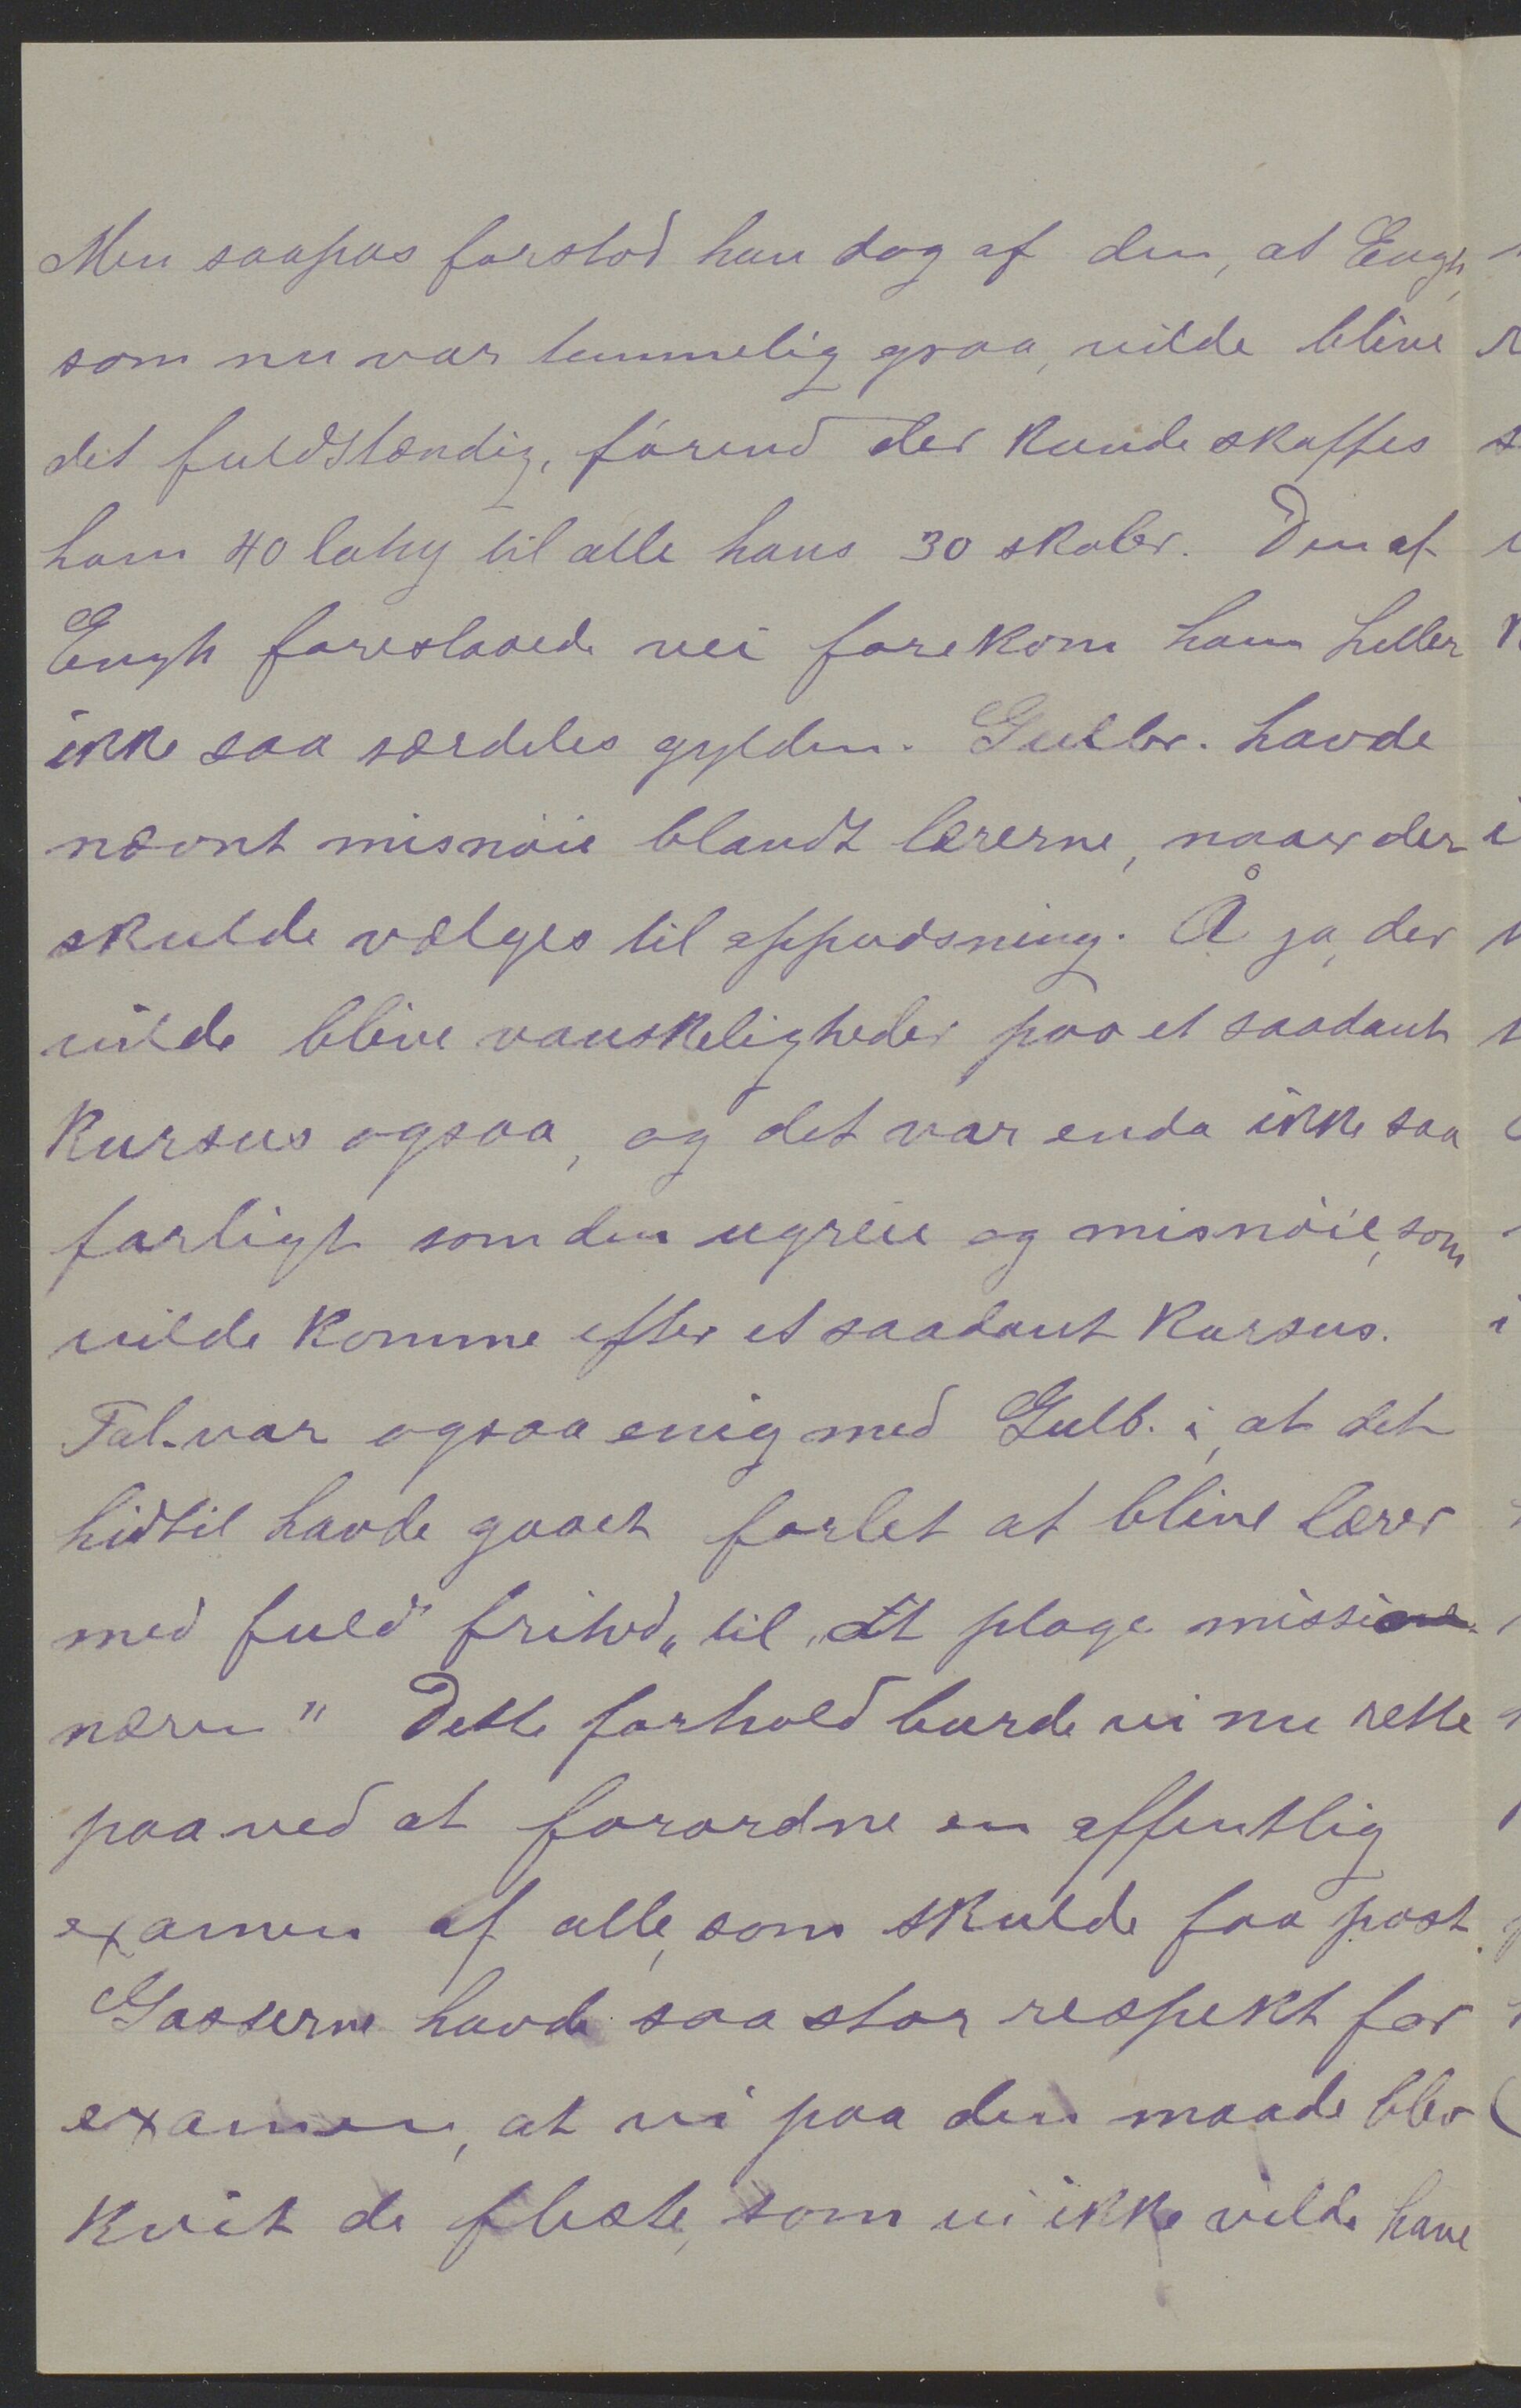 Men saapas forstod han dog af den, at Engh,
som nu var temmelig graa, vilde blive
det fuldstændig, førend der kunde skaffes
ham 40 lahy til alle hans 30 skoler. Den af
Engh foreslaaede vei forekom ham heller
ikke saa særdeles gylden. Gulbr. havde
nævnt misnøie blandt lærerne, naar der
skulde vælges til oppudsning. Å ja, der
vilde blive vanskeligheder paa et saadant
kursus ogsaa, og det var enda ikke saa
farligt som den ugreie og misnøie, som
vilde komme efter et saadant kursus.
Tal. var ogsaa enig med Gulb. i, at det
hidtil havde gaaet forlet at blive lærer
med fuld frihed „til „at plage missio-
næren" Dette forhold burde vi nu rette
paa ved at forordne en offentlig
examen af alle, som skulde faa post.
Gasserne havde saa stor respekt for
examen, at vi paa den maade blev
kvit de fleste, som vi ikke vilde have